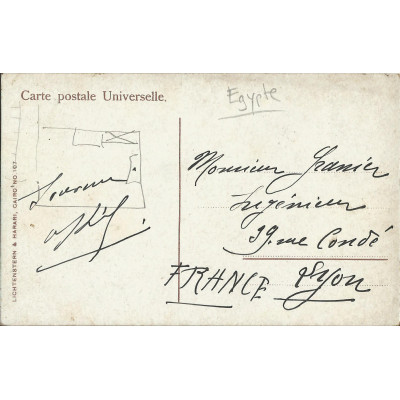 Egypte
Carte postale Universelle.
Monsieur Granier
Ingénieur
39, rue Condé
FRANCE Lyon
LICHTENSTERN & HARARI, CAIRO No. 107